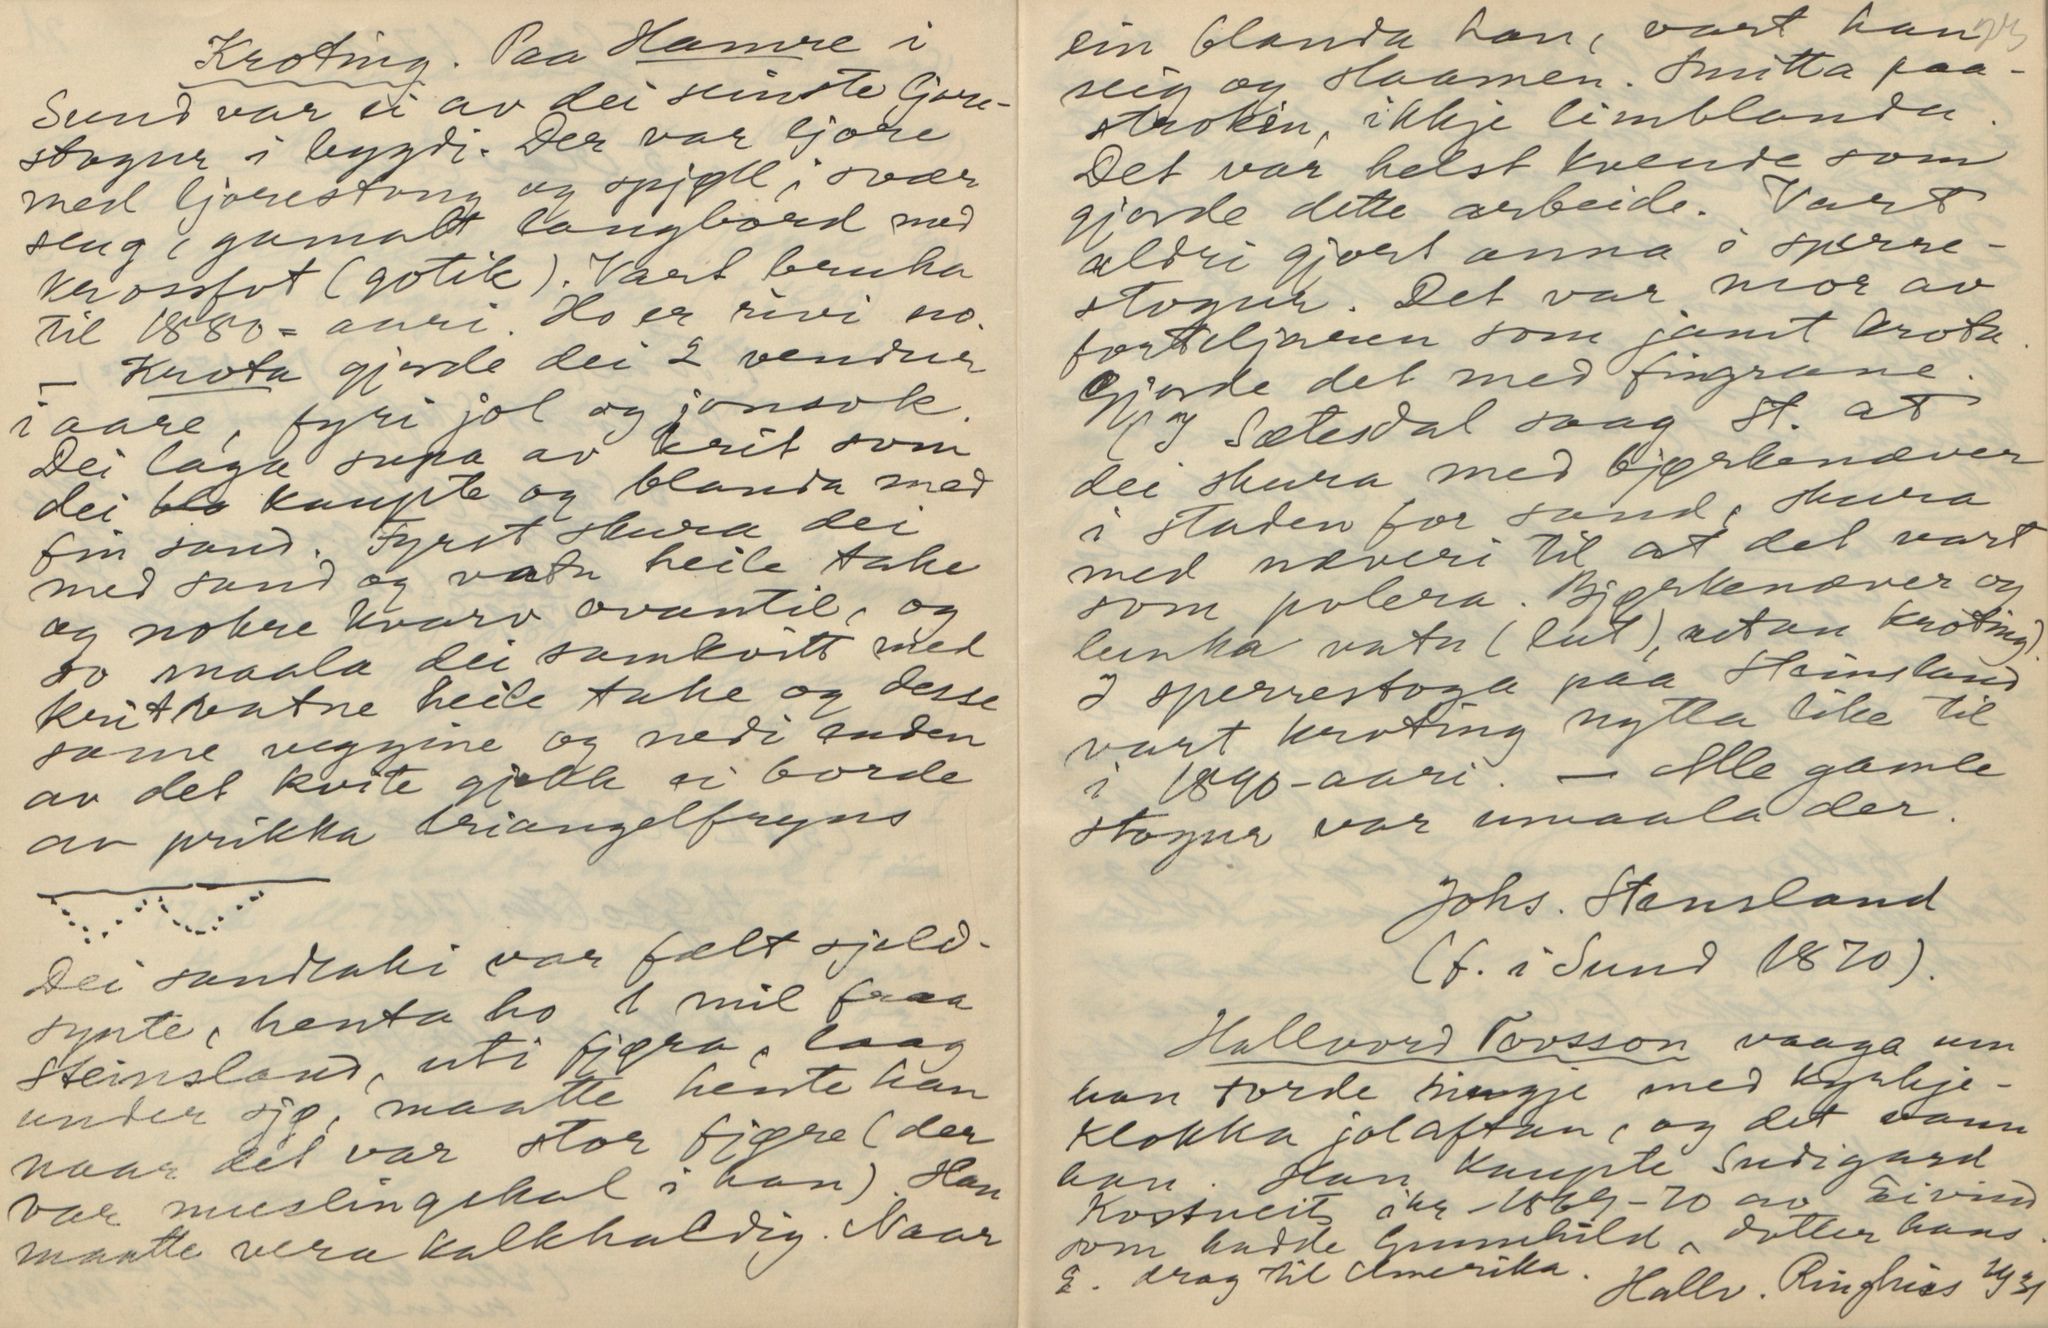 Kroting. Paa Hamre i
Sund var ei av dei seinste ljore-
stogur i bygdi. Der var ljore
med ljorestong og spjøll, svær
seng, gamalt langbord med
krossfot (gotik). Vart bruka
til 1880-aari. Ho er rivi no.
— Krota gjorde dei 2 vendur
i aare, fyri jol og jonsok.
Dei laga supa av krit som
dei kaupte og blanda med
fin sand. Fyrst skura dei
med sand og vatn heile take
og nokre kvarv ovantil, og
so maala dei samkvitt med
kritvatne heile take og desse
same veggine og nedi enden
av det kvite gjekk ei borde
av prikka triangelfryns
Dei sandtaki var fælt sjeld-
synte, henta ho 1 mil fraa
Steinsland, uti fjøra, laag
under sjø, maatte hente han
naar det var stor fjøre (der
var muslingskal i han). Han
maatte vera kalkhaldig. Naar
ein blanda han, vart han
seig og slaamen. Smitta paa-
strokin, ikkje limblanda.
Det var helst kvende som
gjorde dette arbeide. Vart
aldri gjort anna i sperre-
stogur. Det var mor av
forteljaren som jamt krota.
Gjorde det med fingrane.
(I Sætesdal saag St. at
dei skura med bjørkenæver
i staden for sand, skura
med næveri til at det vart
som polera. Bjørkenæver og
lunka vatn (lut), utan kroting).
I sperrestoga paa Steinsland
vart kroting nytta like til
i 1890-aari. — Alle gamle
stogur var umaala der.
Johs. Stensland
(f. i Sund 1870).
Hallvord Tovsson vaaga um
han torde ringje med kyrkje-
klokka jolaftan, og det vann
han. Han kaupte Sudigard
Kostveit ikr. 1869-70 av Eivind
som hadde Gunnhild, dotter hans.
E. drog til Amerika. Hallv. Ringhus 19/31